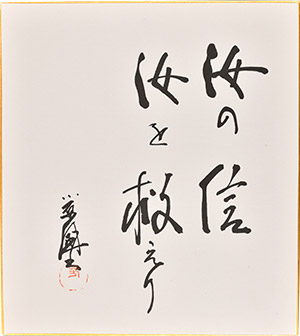 汝の信
汝を救えり